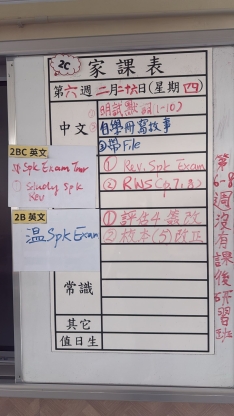 2C 家課表
第六週 二月二十六日(星期四)
中文
明試默詞(1-10)
自學冊寫故事
③帶File
2BC 英文
Spk Exam Tmr
Spk
Rev
① Rev. Spk Exam
② RWS(p.7,8)
2B 英文
温Spk Exam
① 評估4 簽改
② 校本(5)改正
常識
其它
值日生
第6-8週沒有課後研習班